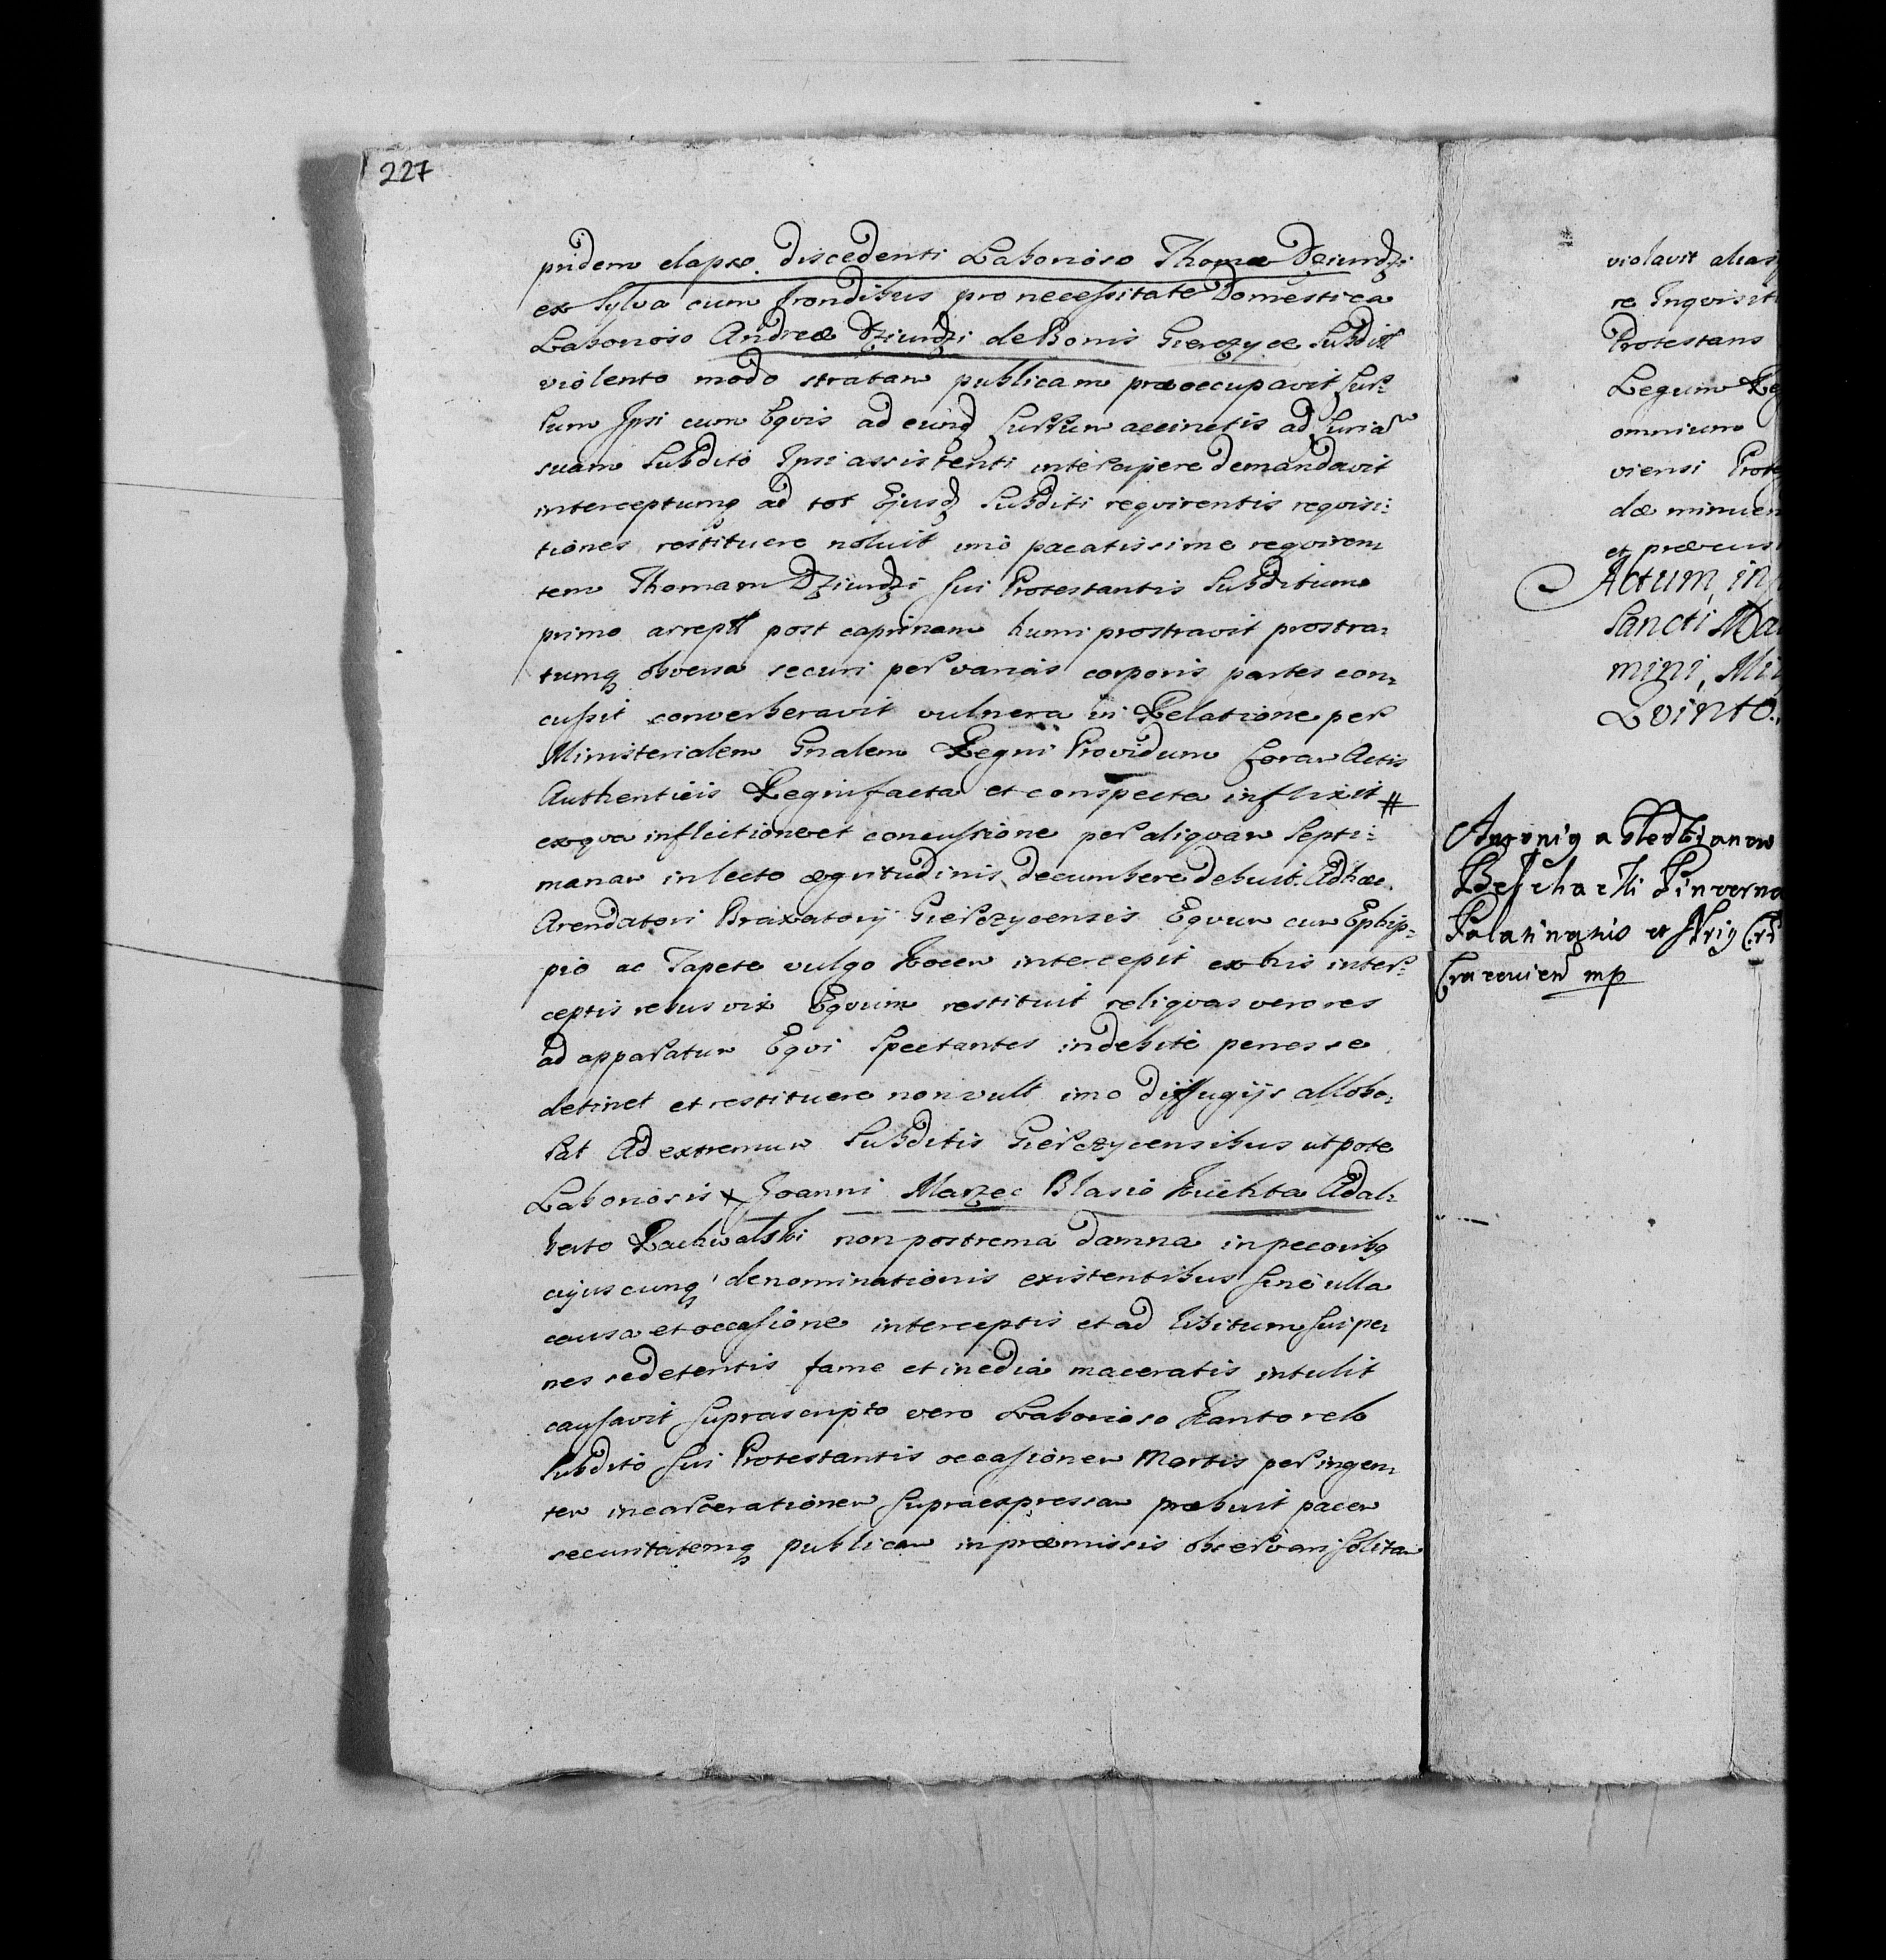 227
pridem elapso discedenti Laborioso Thomæ Dziurdzi
ex Sylva cum frondibus pro necessitate Domestica
Laborioso Andreæ Dziurdzi de Bonis Gierczyce Subdit
violento modo stratam publicam præoccupavit Cur-
sum Ipsi cum Eqvis ad eund Currum accinctis ad Curiam
suam Subdito Ipsi assistenti intercipere demandavit
interceptumq ad tot Ejusd Subditi reqvirentis reqvisi:
tiones restituere noluit imò pacatissime reqviren
tem Thomam Dziurdzi sui Protestantis Subditum
primo arrept post caprinam humi prostravit prostra-
tumq obversa securi per varias corporis partes con-
cussit converberavit vulnera in Relatione per
Ministerialem Gnalem Regni Providum coram Actis
Authenticis Regni facta et conspecta inflixit #
ex qva inflictione et concussione per aliqvam Septi:
manam in lecto ægritudinis decumbere debuit. Ad hæc
Arendatori Braxatorij Gierczycensis Eqvum cum Ephip-
pio ac Tapete vulgo Kocem intercepit ex his inter-
ceptis rebus vix Eqvum restituit reliqvas vero res
ad apparatum Eqvi Spectantes indebitè penes se
detinet et restituere non vult imo diffugijs allobo-
rat Ad extremum Subditis Gierczycensibus utpote
Laboriosis x Joanni Marzec Blasio Kuchta Adal-
berto Rachwalski non postrema damna in pecoribq
cujuscunq denominationis existentibus sine ulla
causa et occasione interceptis et ad libitum sui pe-
nes se detentis fame et inedia maceratis intulit
causavit suprascripto vero Laborioso Kantorek
Subdito sui Protestantis occasionem Mortis per ingen-
tem incarcerationem supraexpressam præbuit pacem
securitatemq publicam in præmissis observari solitam
violavit alias
re Inqvisit
Protestans
Legum Re
omnium
viensi Prote
dæ minuen
et præcus
Actum in
Sancti Ma
mini, Mil
Qvinto.
Antoniq a
Palatinatus et
Cracovien mp